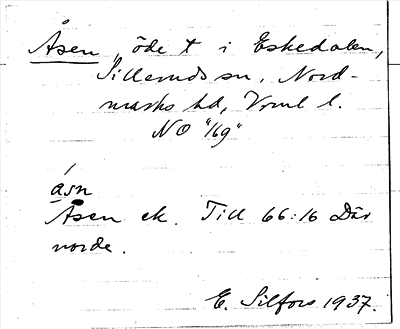 Åsen, öde t i Eskedalen,
Sillerud sn, Nord-
marks hd, Vrml l.
NO "169"
åsn
Åsen ek. Till 66:16 Där
norde.
E. Silfors 1937.